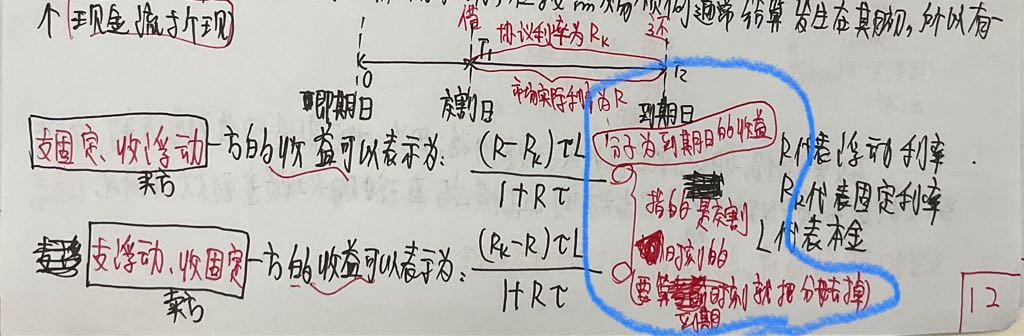 个现金流折现 所以有一
借 协议利率为Rk 还
0 T1 T2
市场实际利率为R
即期日 交割日 到期日
支固定、收浮动一方的收益可以表示为: (R-Rk)τL / 1+Rτ
买方
分子为到期日的收益
指的是交割
时刻的
(要算到期时刻就把分母去掉)
R代表浮动利率.
Rk代表固定利率
L代表本金
支浮动、收固定一方的收益可以表示为: (Rk-R)τL / 1+Rτ
卖方
12